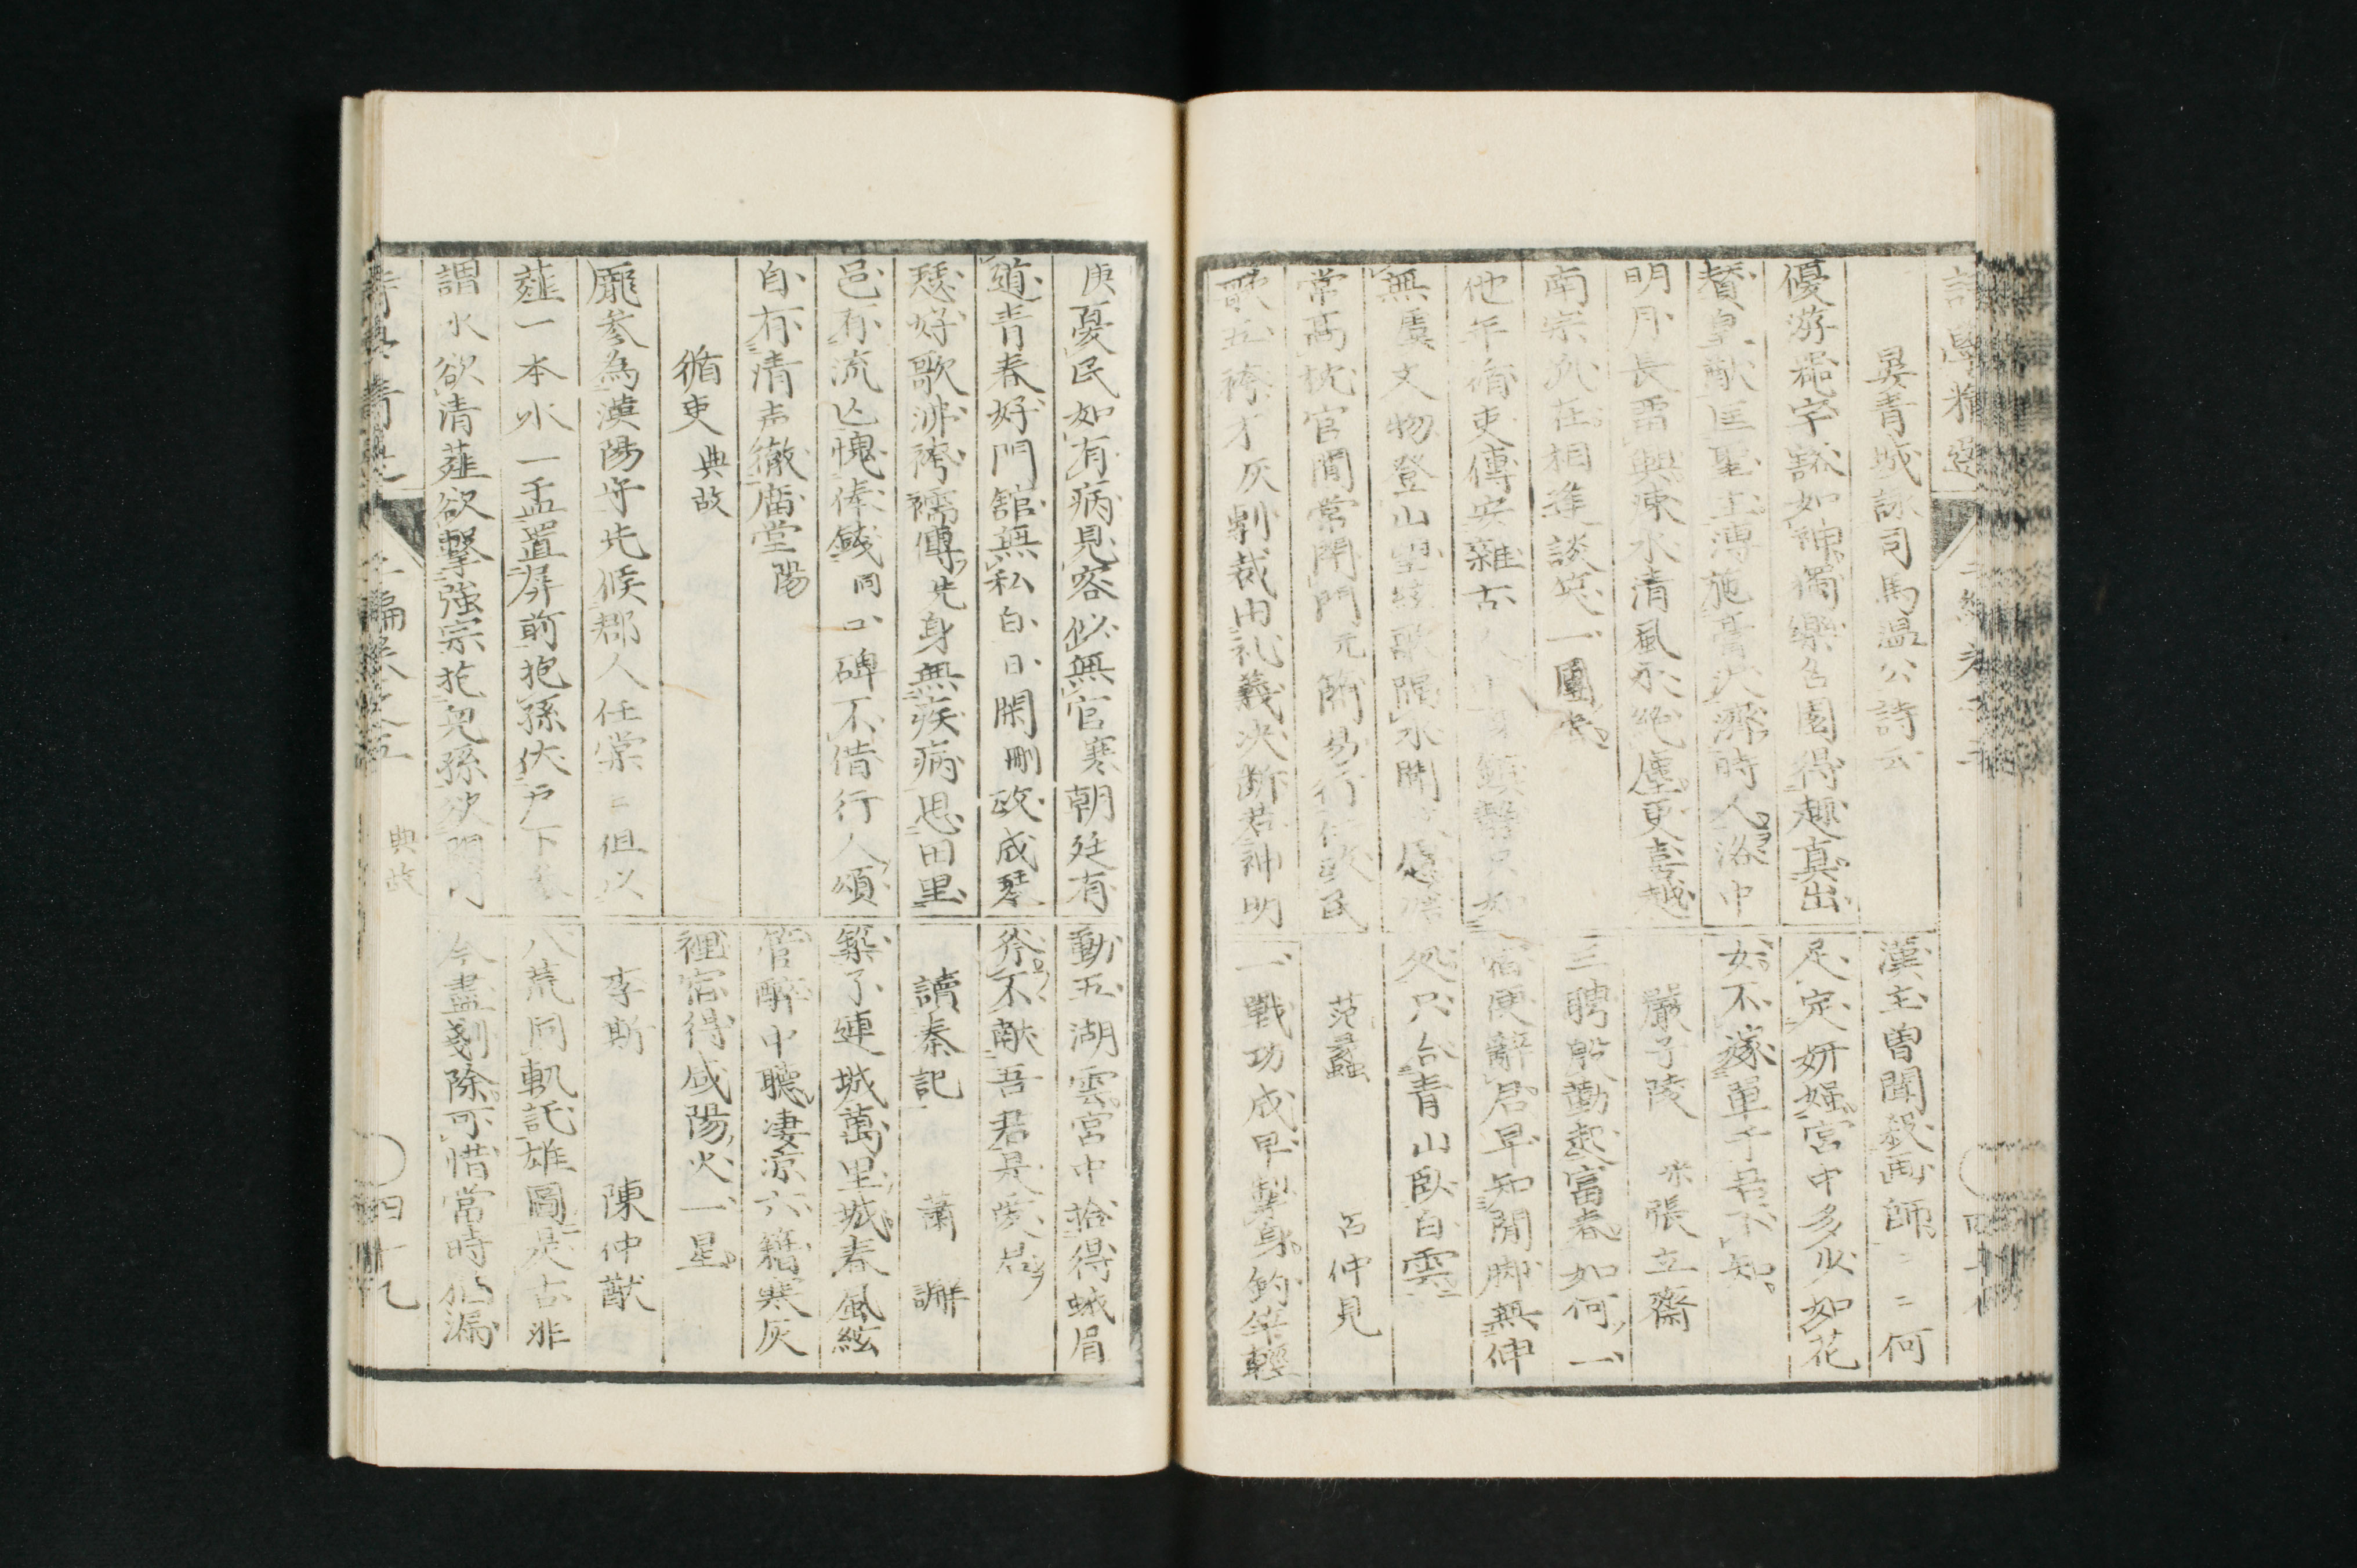 詩學精選
吳青城詠司馬溫公詩云
優游器宇豁如神獨樂名園得趣真出
賛皇猷匡聖主溥施膏沢濟時人洛中
明月長留興涑水清風永絶塵更喜越
南宗派在相逢談笑一團
他年循吏傳安雜古
無虞文物登山望絃歌隔水聞
常高枕官閒常閉門元簡易行仁政民
歌五袴才灰剸裁由礼義决断若神明
漢主曽聞殺画師二二何
足定妍媸宮中多少如花
女不嫁單于君不知
嚴子陵 宋張立齋
三聘殷勤起富春如何一
宿便辭君早知閒脚無伸
処只合青山臥白雲
范蠡 呂仲見
一戰功成早掣身釣竿輕
庚憂民如有病見客似無官寒朝廷有
道青春好門館無私白日閑刪政成琴
瑟好歌沸袴襦傳先身無疾病思田里
邑有流亡愧俸錢同口碑不借行人頌
自有清声徹庿堂陽
循吏 典故
龎參為漢陽守先候郡人任棠二但以
薤一本水一盂置屏前抱孫伏戸下參
謂水欲清薤欲擊強宗抱兒孫欲開門
動五湖雲宮中拾得蛾眉
斧不献吾君是愛君
讀秦記 蕭澥
築了連城萬里城春風絃
管醉中聽凄凉六籍寒灰
裡宿得咸陽火一星
李斯 陳仲猷
八荒同軌託雄圖是古非
今盡剗除可惜當時猶漏
典故